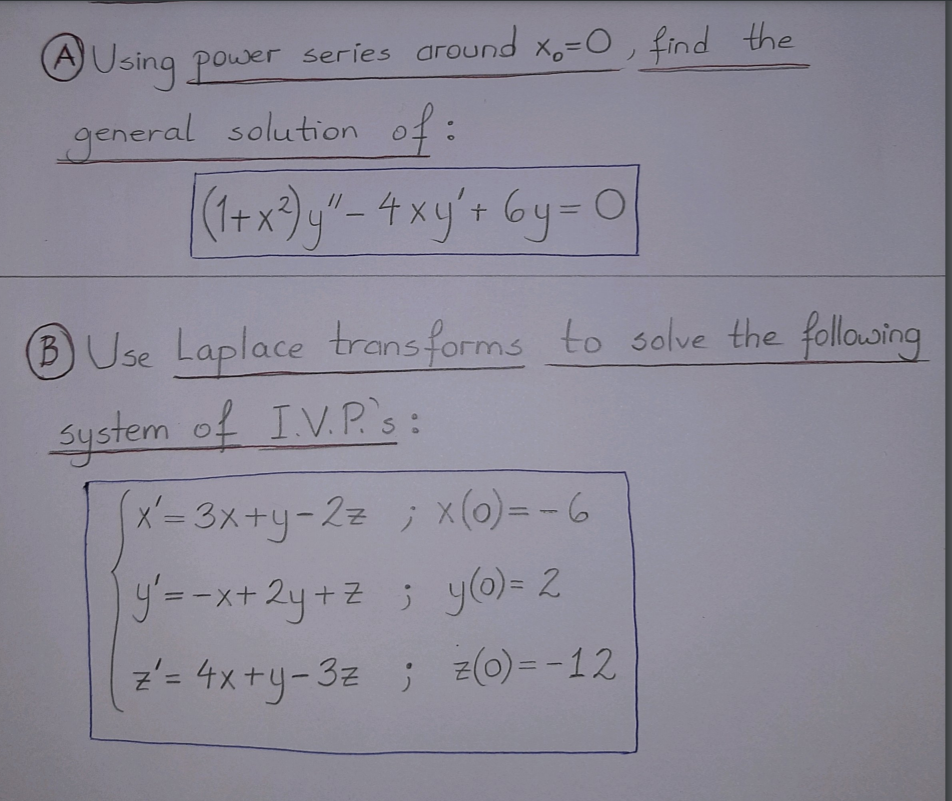 Ⓐ Using power series around x₀=0, find the
general solution of:
(1+x²)y"- 4xy'+ 6y=0
Ⓑ Use Laplace transforms to solve the following
system of I.V.P.'s:
x'= 3x+y-2z ; x(0)=-6
y'=-x+2y+z ; y(0)= 2
z'= 4x+y-3z ; z(0)=-12